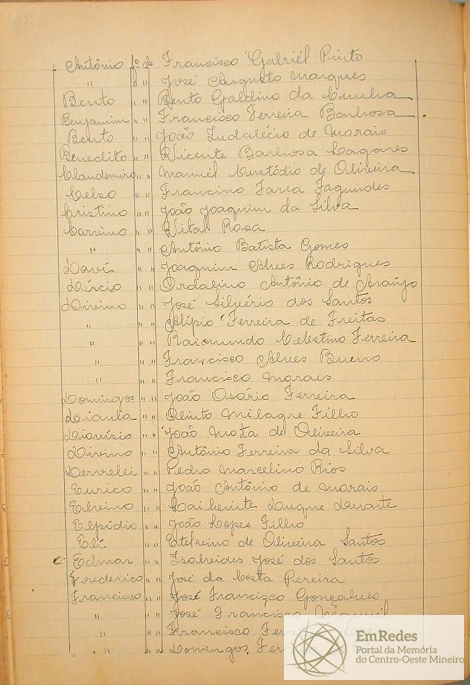 Antônio fº de Francisco Gabriel Pinto
" " " José Augusto Marques
Bento " " Bento Galdino da Cunha
Benjamim " " Francisco Ferreira Barbosa
Bento " " João Indalécio de Morais
Benedito " " Vicente Barbosa
Claudemiro " " Manuel Custódio de Oliveira
Celso " " Francino Faria Fagundes
Cristino " " João Joaquim da Silva
" " Vital Rosa
" " " Antônio Batista Gomes
Davi " " Joaquim Alves Rodrigues
Décio " " Ordalino Antônio de Araújo
" " José Silvério dos Santos
" " " Alípio Ferreira de Freitas
" " " Raimundo Celestino Ferreira
" " " Francisco Alves Bueno
" " " Francisco Morais
Domingos " " João Osório Ferreira
" " Olinto Milagre Filho
Dionísio " " João Mota de Oliveira
Divino " " Antônio Ferreira da Silva
" " Pedro Marcelino Rios
Eurico " " João Antônio de Morais
" " Duque Duarte
Elpídio " " João Lopes Filho
Eli " " Etelvino de Oliveira Santos
Edmar " " José dos Santos
Frederico " " José da Costa Pereira
Francisco " " José Francisco Gonçalves
" " " José Francisco
" " " Francisco
" " " Domingos
EmRedes
Portal da Memória
do Centro-Oeste Mineiro